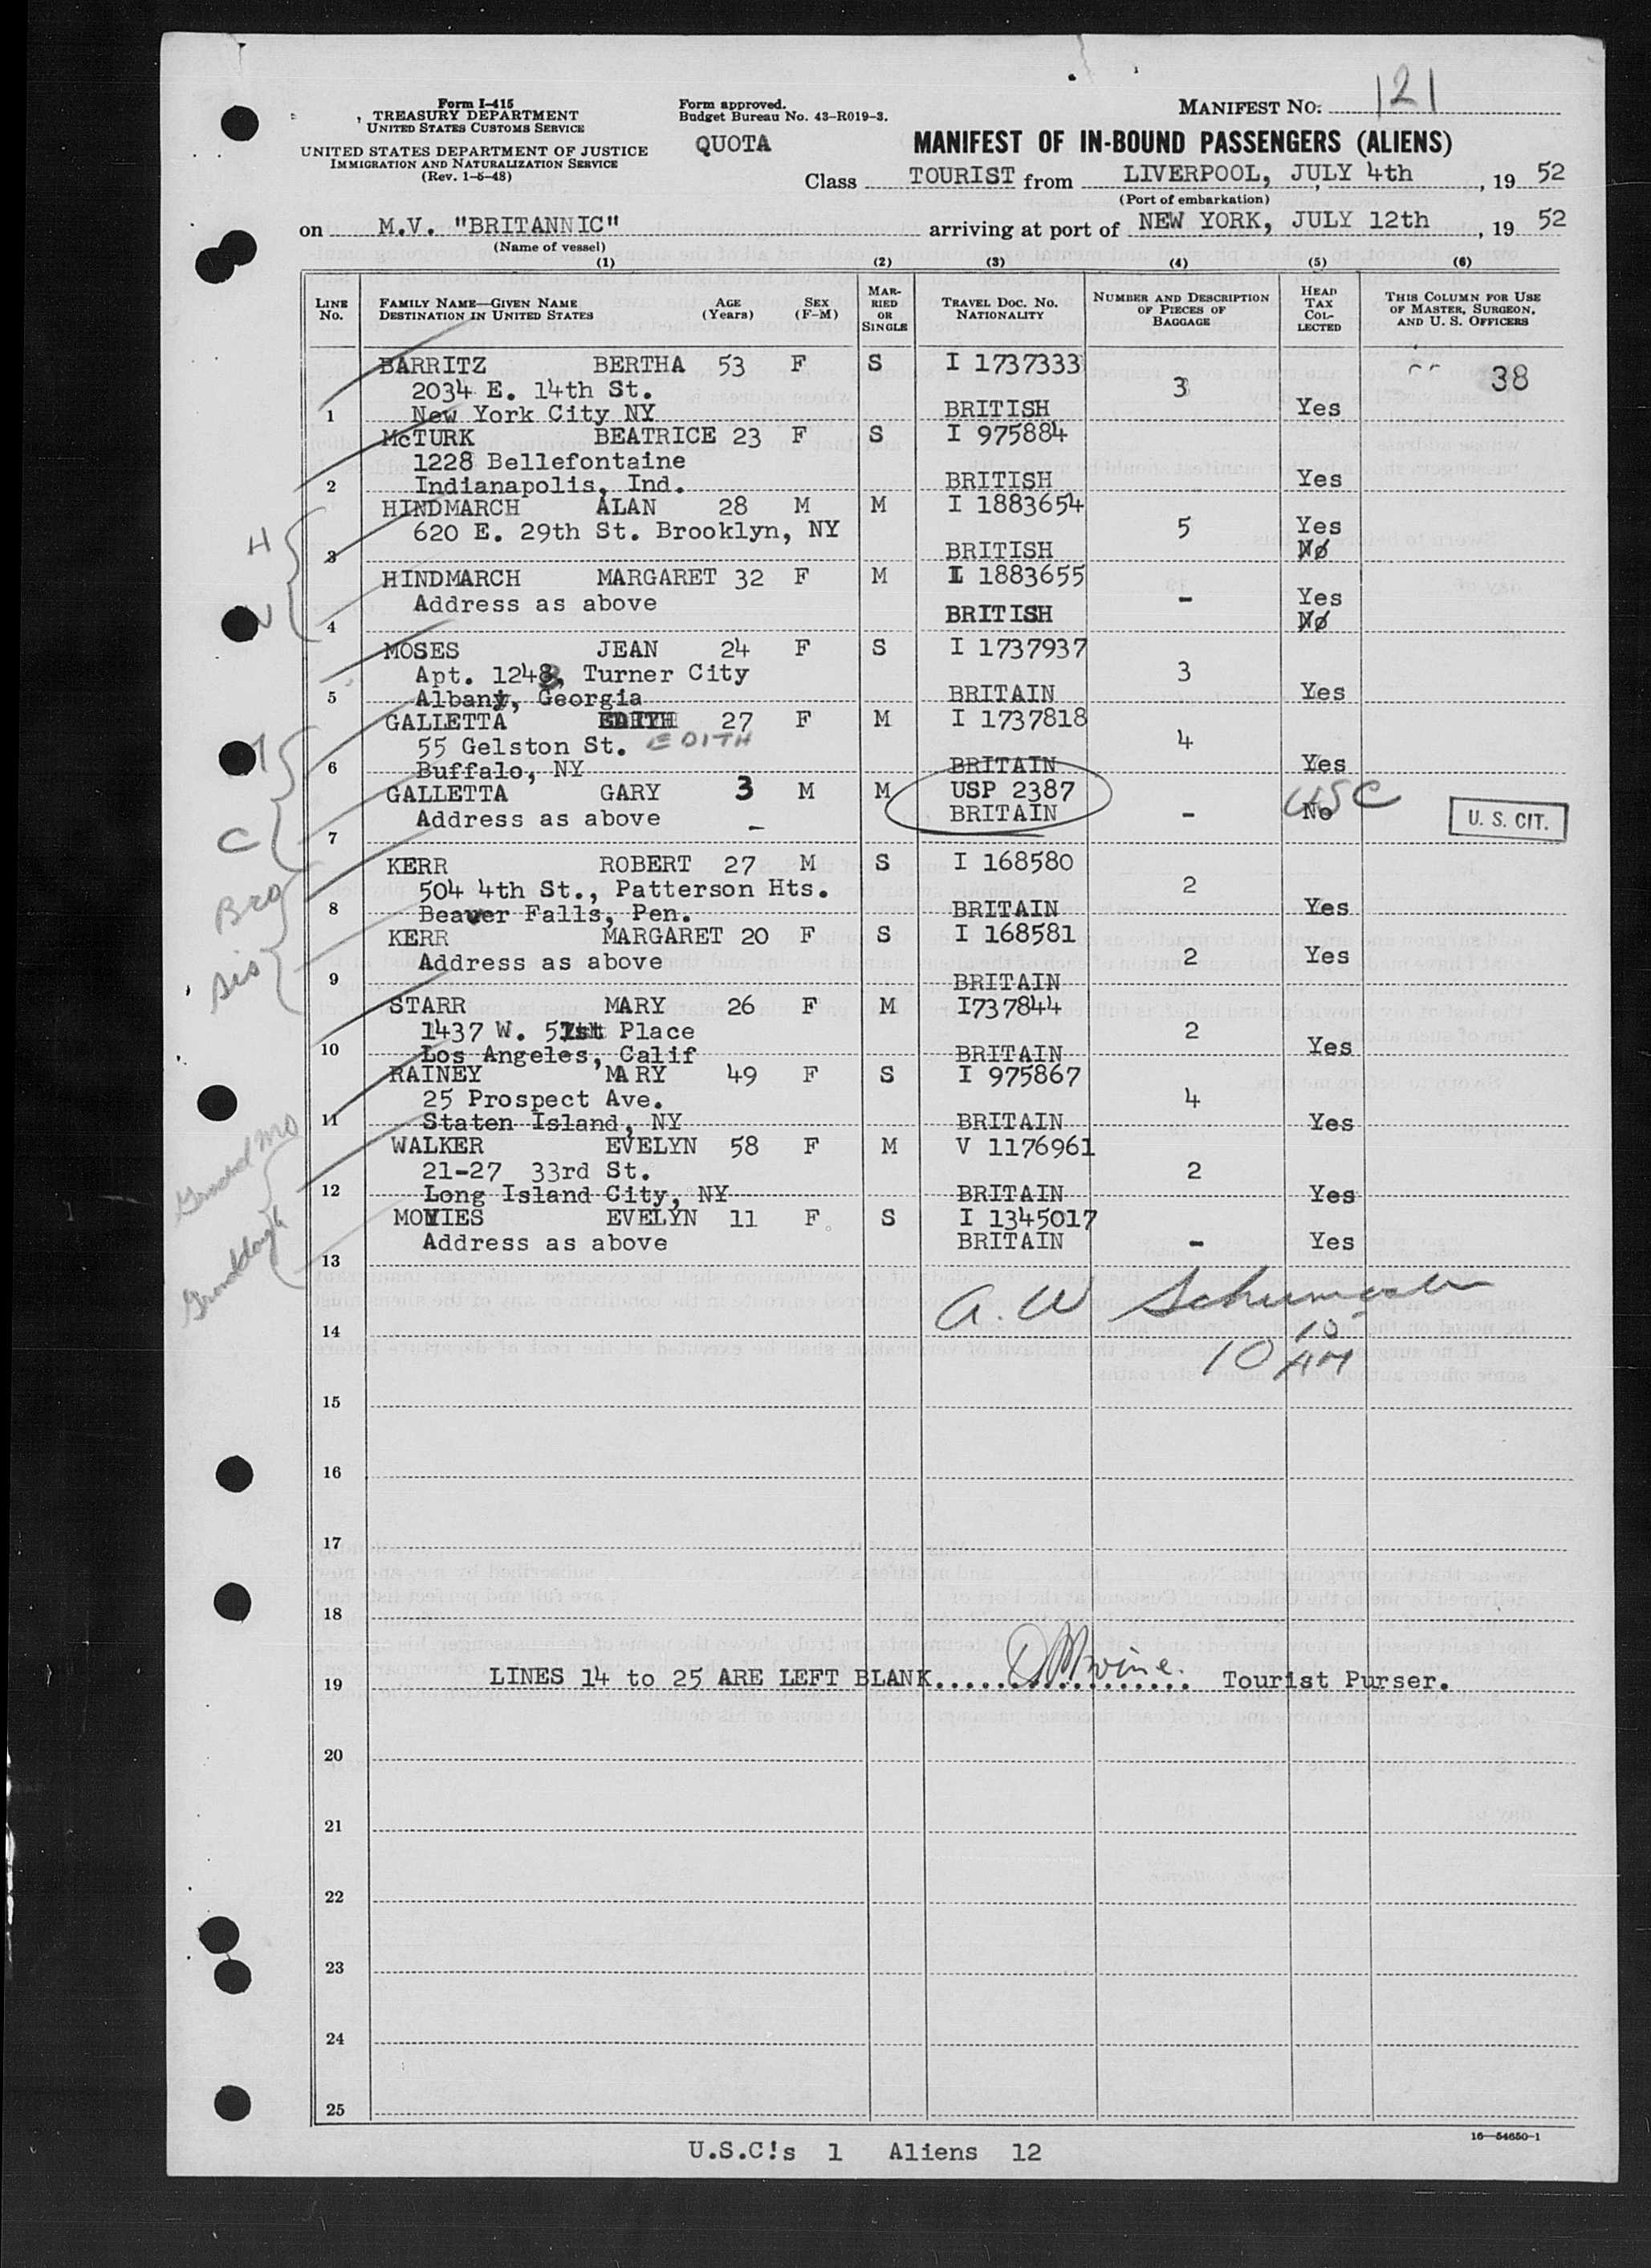 Form I-415
TREASURY DEPARTMENT
UNITED STATES CUSTOMS SERVICE
UNITED STATES DEPARTMENT OF JUSTICE
IMMIGRATION AND NATURALIZATION SERVICE
(Rev. 1-5-48)
Form approved.
Budget Bureau No. 43-R019-3.
QUOTA
MANIFEST NO. 121
MANIFEST OF IN-BOUND PASSENGERS (ALIENS)
Class TOURIST from LIVERPOOL, JULY 4th, 19 52
(Port of embarkation)
on M.V. "BRITANNIC" arriving at port of NEW YORK, JULY 12th, 19 52
(Name of vessel)
(1) (2) (3) (4) (5) (6)
LINE No. FAMILY NAME—GIVEN NAME DESTINATION IN UNITED STATES AGE (Years) SEX (F-M) MARRIED OR SINGLE TRAVEL DOC. NO. NATIONALITY NUMBER AND DESCRIPTION OF PIECES OF BAGGAGE HEAD TAX COLLECTED THIS COLUMN FOR USE OF MASTER, SURGEON, AND U. S. OFFICERS
BARRITZ BERTHA 53 F S I 1737333 38
2034 E. 14th St. 3
1 New York City NY BRITISH Yes
McTURK BEATRICE 23 F S I 975884
1228 Bellefontaine
2 Indianapolis, Ind. BRITISH Yes
HINDMARCH ALAN 28 M M I 1883654
H 620 E. 29th St. Brooklyn, NY 5 Yes
3 BRITISH No
HINDMARCH MARGARET 32 F M I 1883655
W Address as above BRITISH - Yes
4 No
MOSES JEAN 24 F S I 1737937
Apt. 1248, Turner City 3
5 Albany, Georgia BRITAIN Yes
GALLETTA EDITH 27 F M I 1737818
55 Gelston St. EDITH 4
6 Buffalo, NY BRITAIN Yes
GALLETTA GARY 3 M M USP 2387 USC
Address as above - BRITAIN - No U. S. CIT.
C 7
KERR ROBERT 27 M S I 168580
Bro 504 4th St., Patterson Hts. 2
8 Beaver Falls, Pen. BRITAIN Yes
KERR MARGARET 20 F S I 168581
Sis Address as above 2 Yes
9 BRITAIN
STARR MARY 26 F M I737844
1437 W. 51st Place 2
10 Los Angeles, Calif BRITAIN Yes
RAINEY MARY 49 F S I 975867
25 Prospect Ave. 4
11 Staten Island, NY BRITAIN Yes
Grand Mo
WALKER EVELYN 58 F M V 1176961
21-27 33rd St. 2
12 Long Island City, NY BRITAIN Yes
Granddaugh
EVELYN 11 F S I 1345017
Address as above BRITAIN - Yes
13
A. W
14
10 10 AM
15
16
17
18
19 LINES 14 to 25 ARE LEFT BLANK................... Tourist Purser.
20
21
22
23
24
25
16—54650-1
U.S.C!s 1 Aliens 12